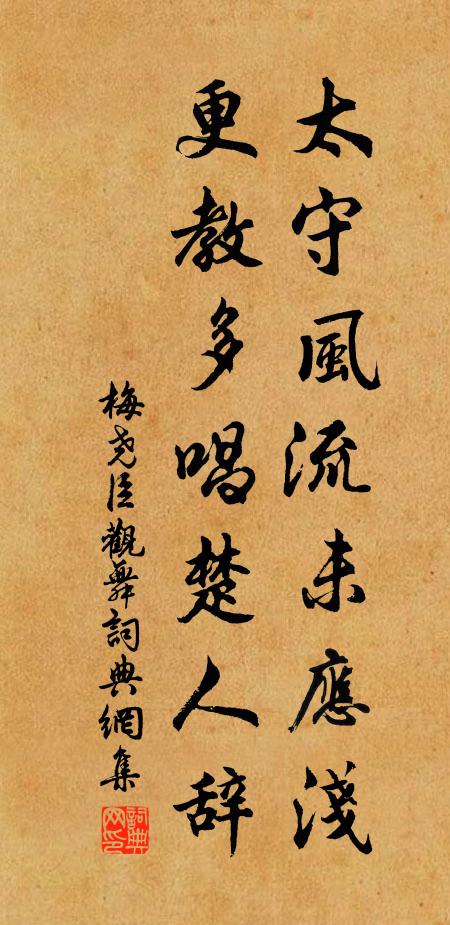 太守風流未應淺
更教多唱楚人辞
梅尧臣觀舞詞典網集
詞典网印